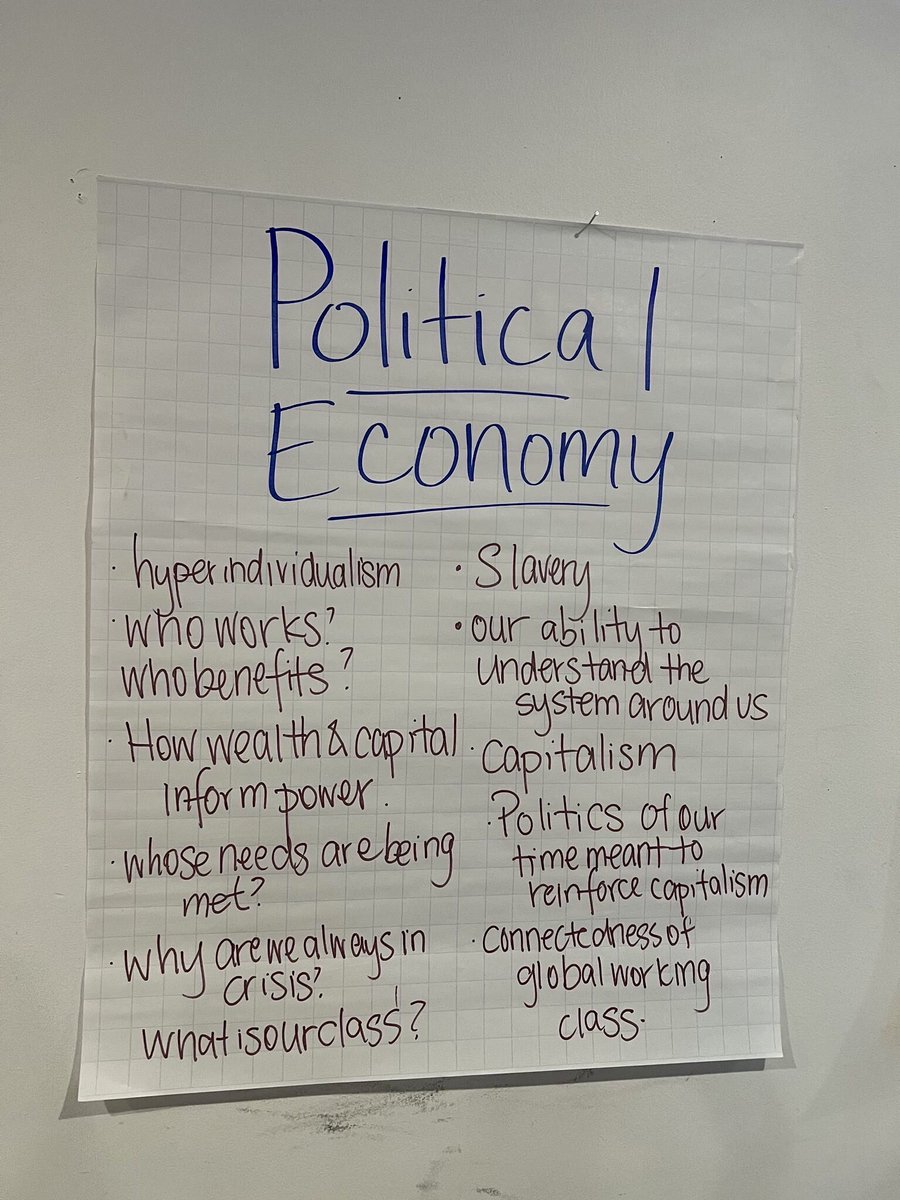 Political
Economy
· hyperindividualism
· who works?
who benefits?
· How wealth & capital
inform power.
· whose needs are being
met?
· why are we always in
crisis?
what is our class?
· Slavery
· our ability to
understand the
system around us
· Capitalism
· Politics of our
time meant to
reinforce capitalism
· connectedness of
global working
class.